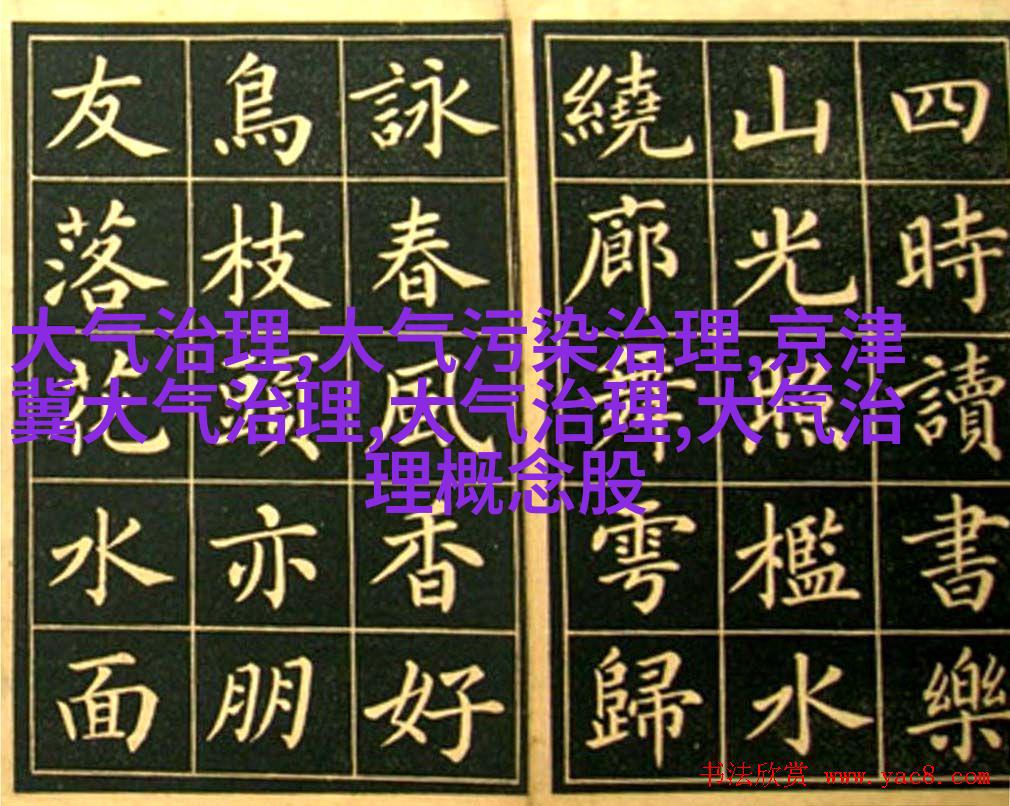 四時讀書樂
山光照檻水
繞廊舞雩歸
詠春風香好
鳥枝頭亦朋
友落花水面
大气治理,大气污染治理,京津
冀大气治理,大气治理,大气治
理概念股
书法欣赏 www.yac8.com